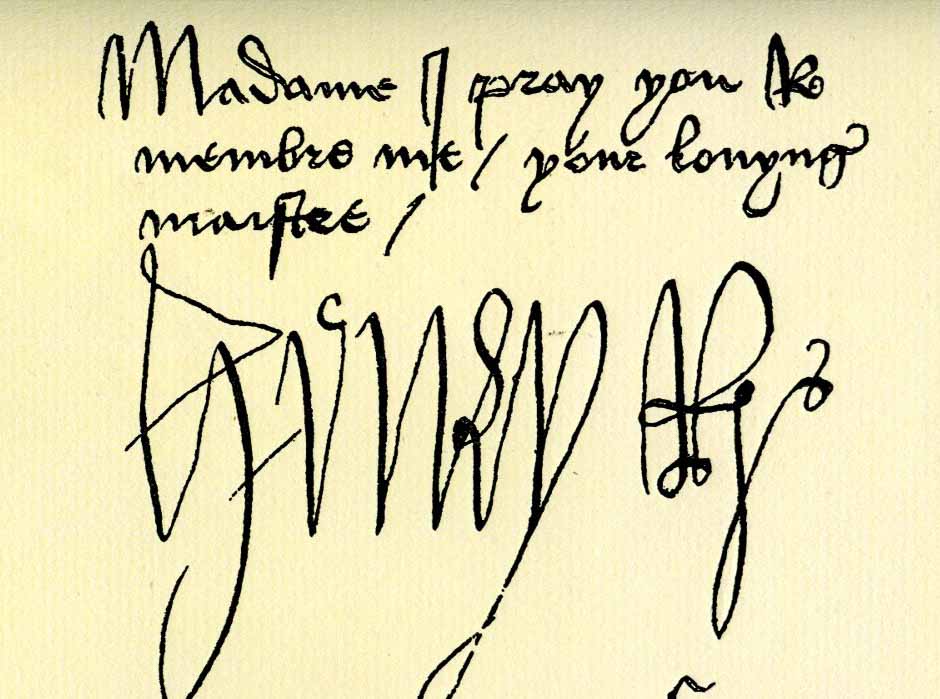 Madame I pray you Re
membre me / your louyng
maistre /
Henry R